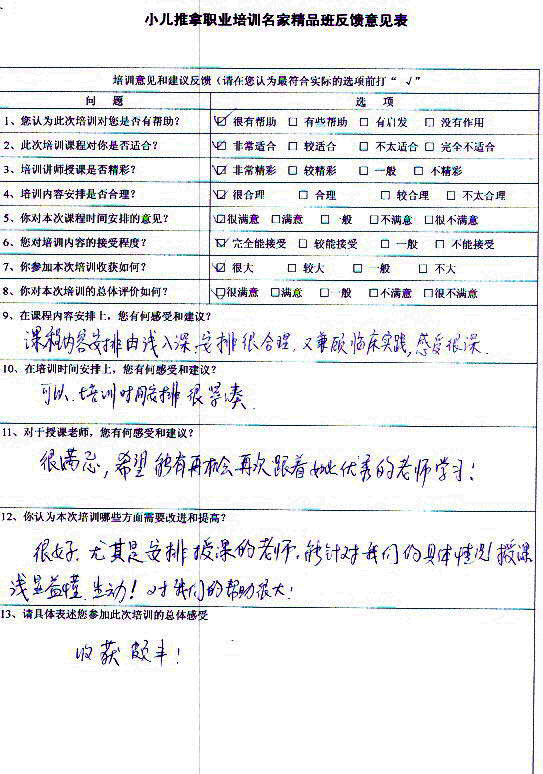 小儿推拿职业培训名家精品班反馈意见表
培训意见和建议反馈（请在您认为最符合实际的选项前打“ √”
问 题 选 项
1、您认为此次培训对您是否有帮助？ ☑ 很有帮助 □ 有些帮助 □ 有启发 □ 没有作用
2、此次培训课程对你是否适合？ ☑ 非常适合 □ 较适合 □ 不太适合 □ 完全不适合
3、培训讲师授课是否精彩？ ☑ 非常精彩 □ 较精彩 □ 一般 □ 不精彩
4、培训内容安排是否合理？ ☑ 很合理 □ 合理 □ 较合理 □ 不太合理
5、你对本次课程时间安排的意见？ ☑很满意 □满意 □一般 □不满意 □很不满意
6、您对培训内容的接受程度？ ☑ 完全能接受 □ 较能接受 □ 一般 □ 不能接受
7、你参加本次培训收获如何？ ☑ 很大 □ 较大 □ 一般 □ 不大
8、你对本培训的总体评价如何？ ☑很满意 □满意 □一般 □不满意 □很不满意
9、在课程内容安排上，您有何感受和建议？
课程内容安排由浅入深，安排很合理，又兼顾临床实践，感受很深．
10、在培训时间安排上，您有何感受和建议？
可以．培训时间安排很紧凑．
11、对于授课老师，您有何感受和建议？
很满意，希望能有再机会再次跟着如此优秀的老师学习！
12、你认为本次培训哪些方面需要改进和提高？
很好．尤其是安排授课的老师，能针对我们的具体情况授课
浅显益懂，生动！对我们的帮助很大！
13、请具体表述您参加此次培训的总体感受
收获颇丰！